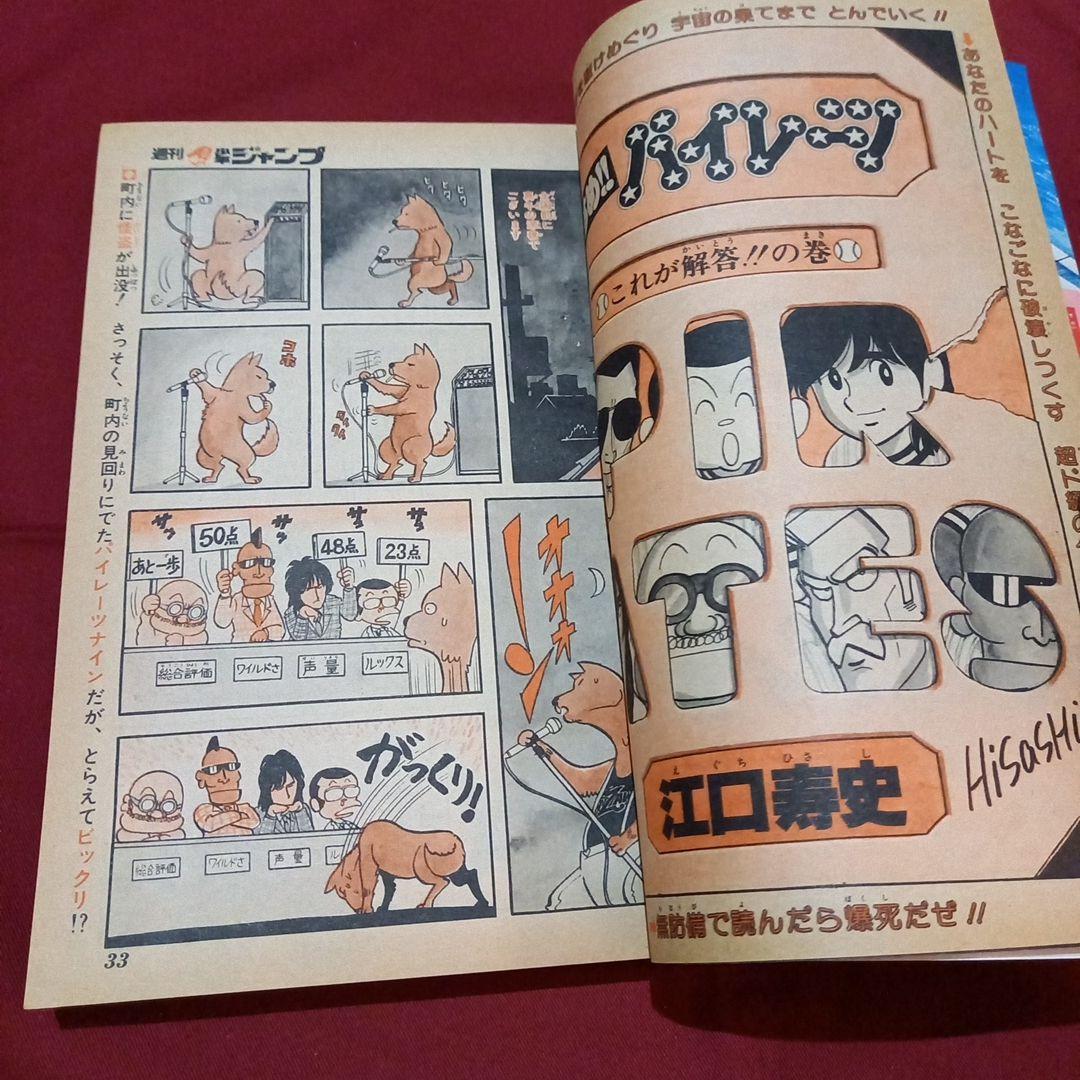 とんでいく!!
宇宙の果てまで
けめぐり
あなたのハートを
こなごなに破壊しつくす
め!!パイレーツ
これが解答!!の巻
かいとう
まき
PIRATES
えぐちひさし
江口寿史
Hisashi
無防備で読んだら爆死だぜ!!
週刊少年ジャンプ
町内に怪盗が出没!
さっそく、町内の見回りにでたパイレーツナインだが、とらえてビックリ!?
ヒタ
ヒタ
ヒタ
コホ
ございます
オオオオ!
サッ
サッ
サッ
サッ
あと一歩
50点
48点
23点
総合評価
ワイルドさ
声量
ルックス
がっくり!
総合評価
ワイルドさ
声量
ル
33